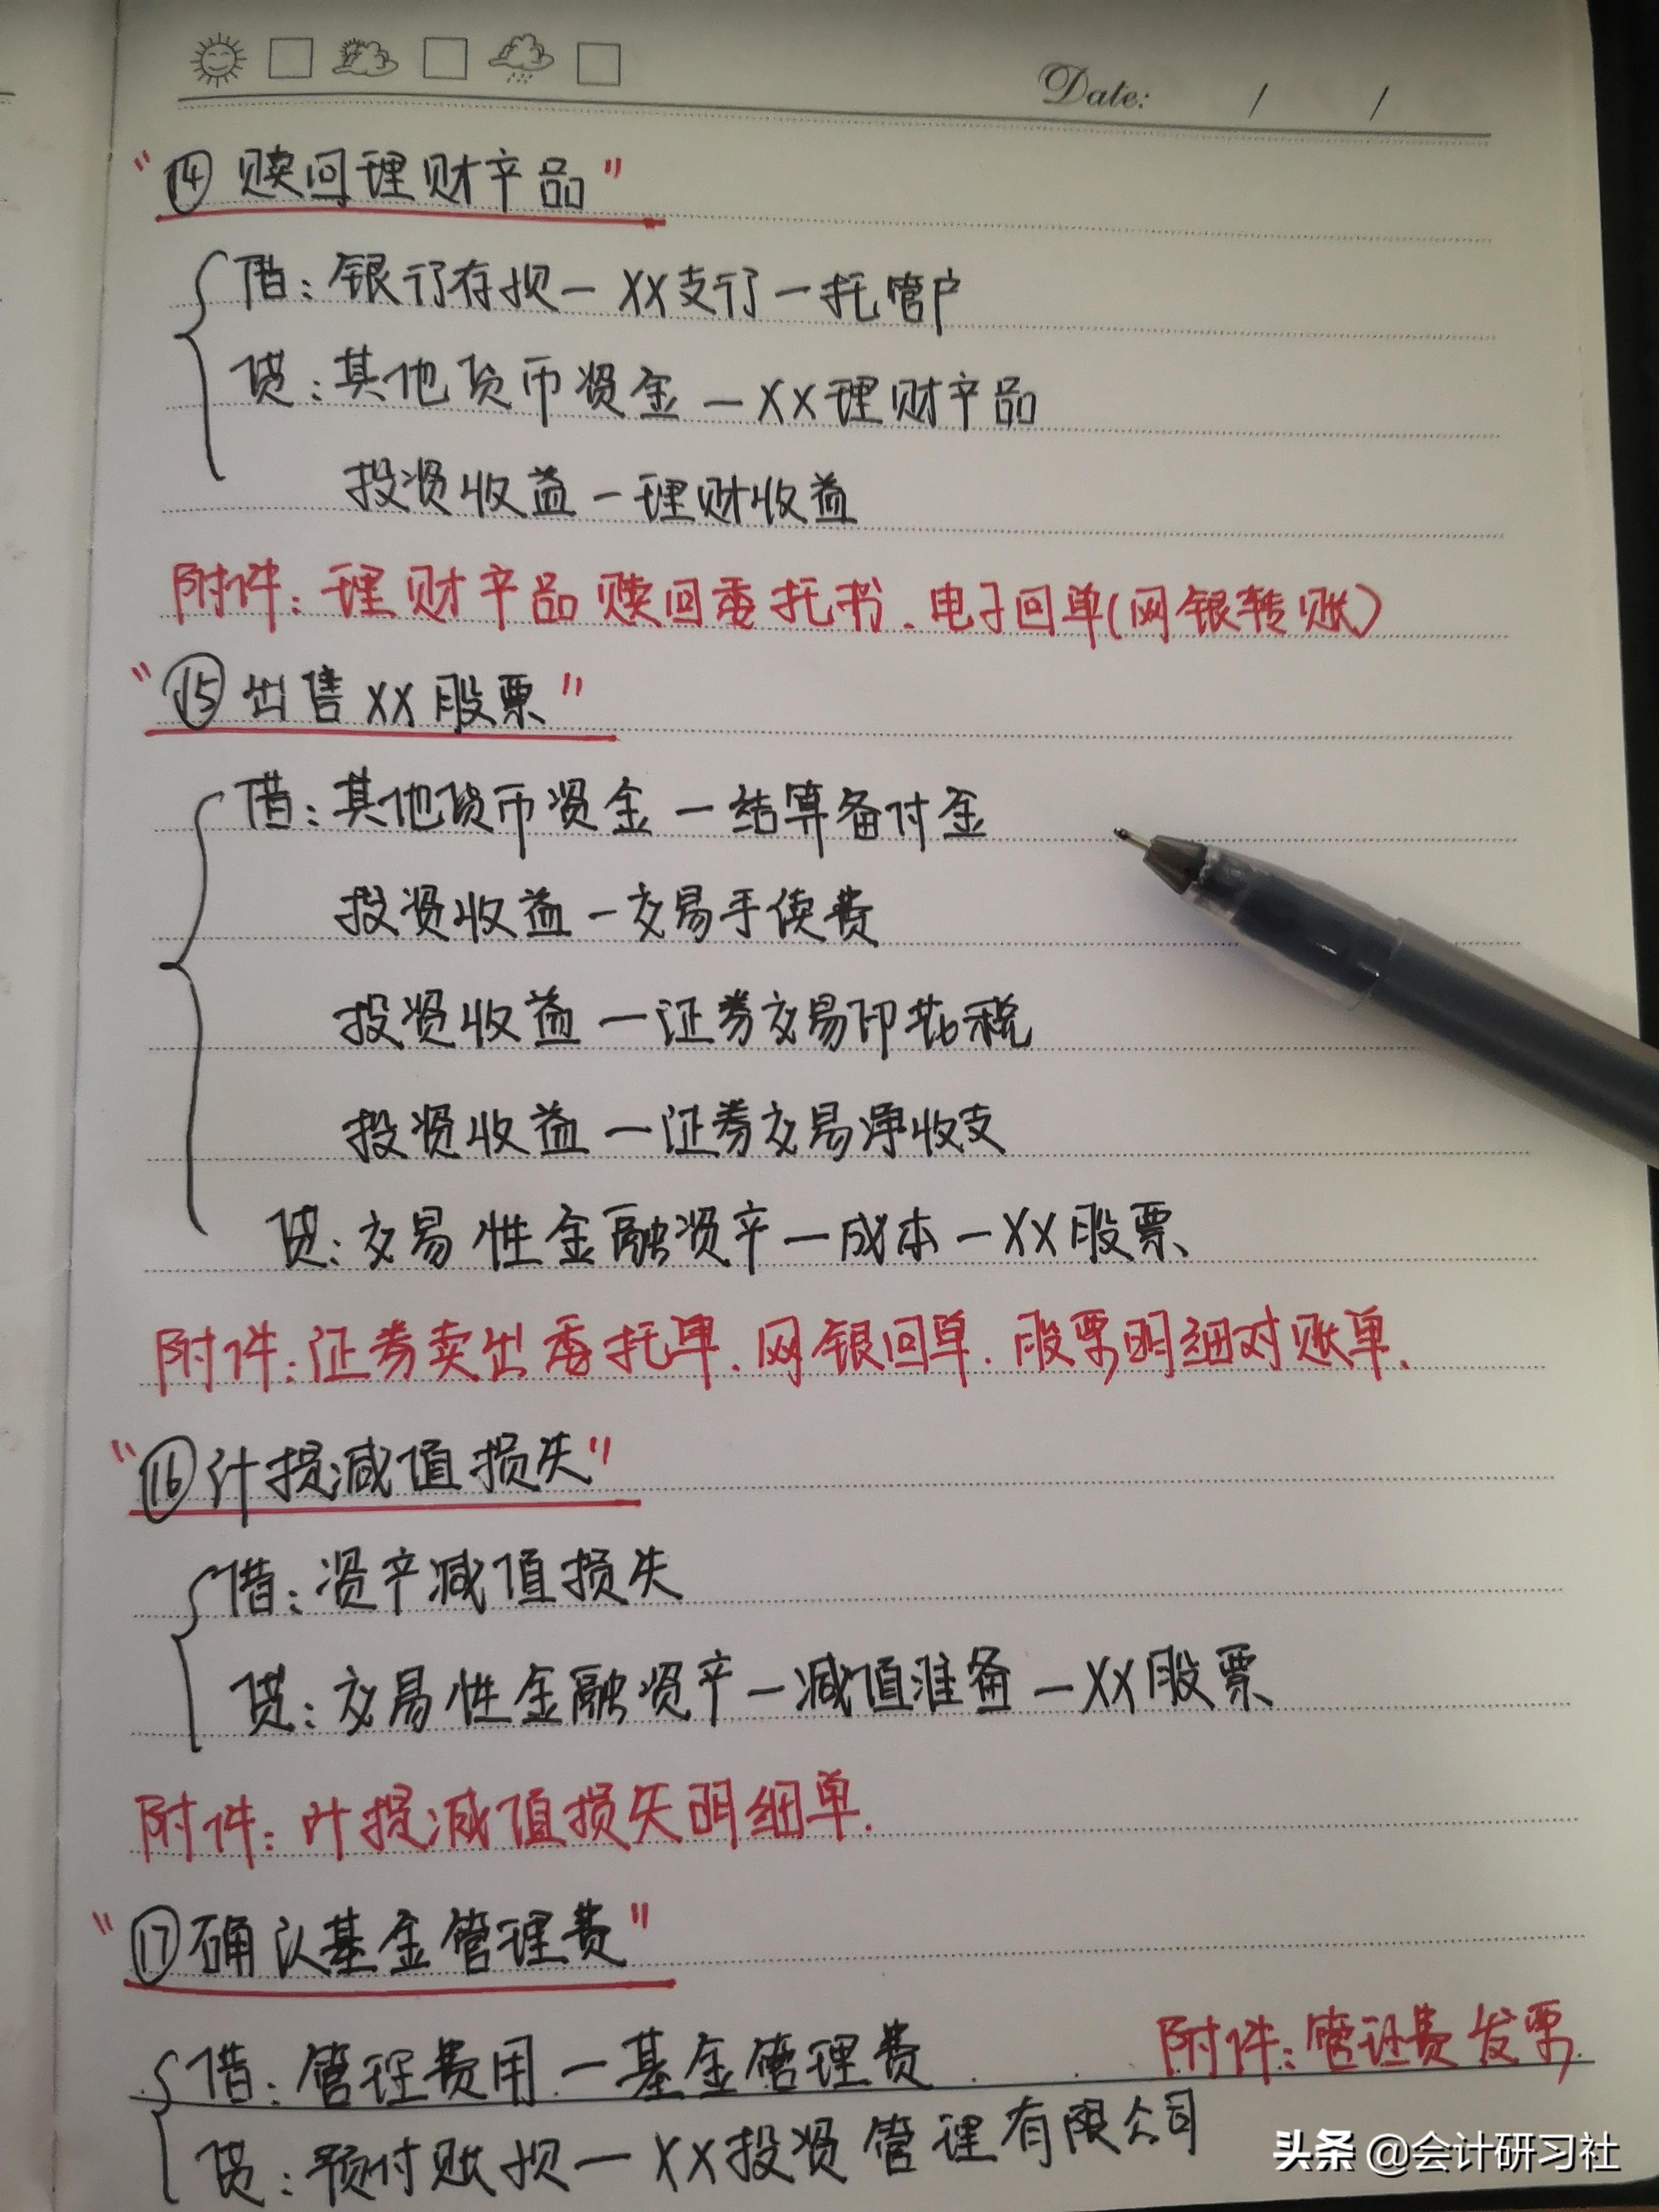 Date: / /
"⑭赎回理财产品"
借:银行存款-XX支行-托管户
贷:其他货币资金-XX理财产品
投资收益-理财收益
附件:理财产品赎回委托书.电子回单(网银转账)
"⑮出售XX股票"
借:其他货币资金-结算备付金
投资收益-交易手续费
投资收益-证券交易印花税
投资收益-证券交易净收支
贷:交易性金融资产-成本-XX股票、
附件:证券卖出委托单.网银回单.股票明细对账单.
"⑯计损减值损失"
借:资产减值损失
贷:交易性金融资产-减值准备-XX股票、
附件:计提减值损失明细单.
"⑰确认基金管理费"
借:管理费用-基金管理费 附件:管理费发票.
贷:预付账款-XX投资管理有限公司
头条@会计研习社